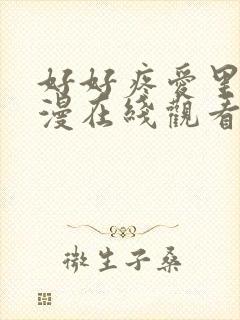 好好疼愛里
漫在綫觀看
微生子桑